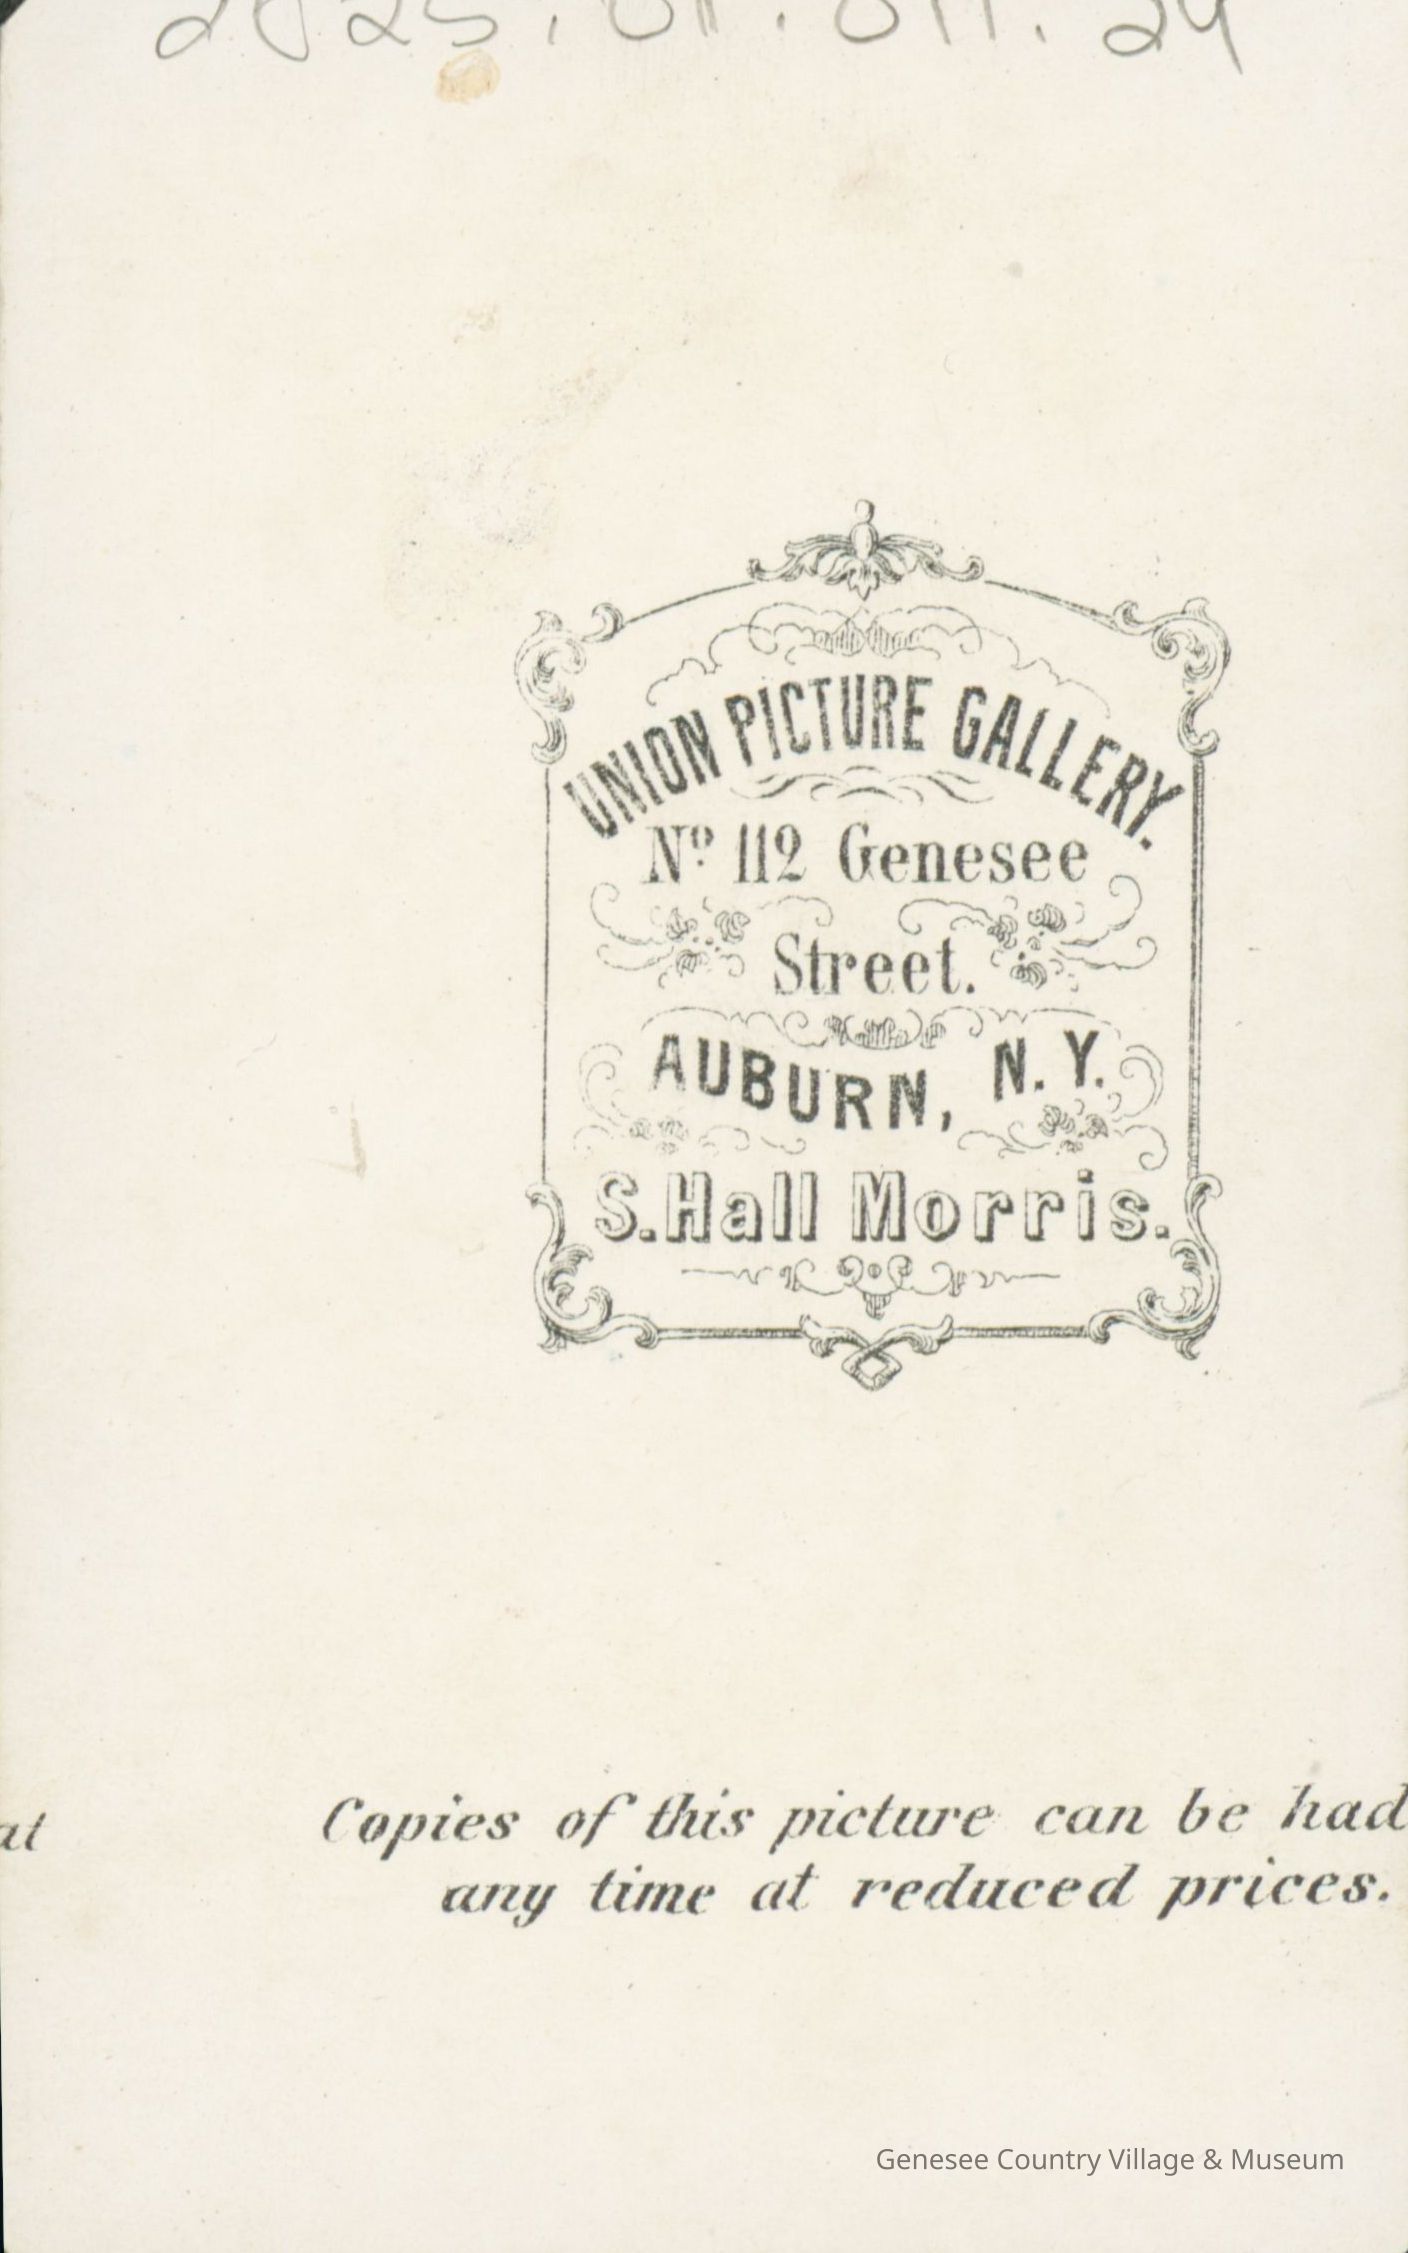 UNION PICTURE GALLERY.
Nº 112 Genesee
Street.
AUBURN, N.Y.
S. Hall Morris.
at
Copies of this picture can be had
any time at reduced prices.
Genesee Country Village & Museum